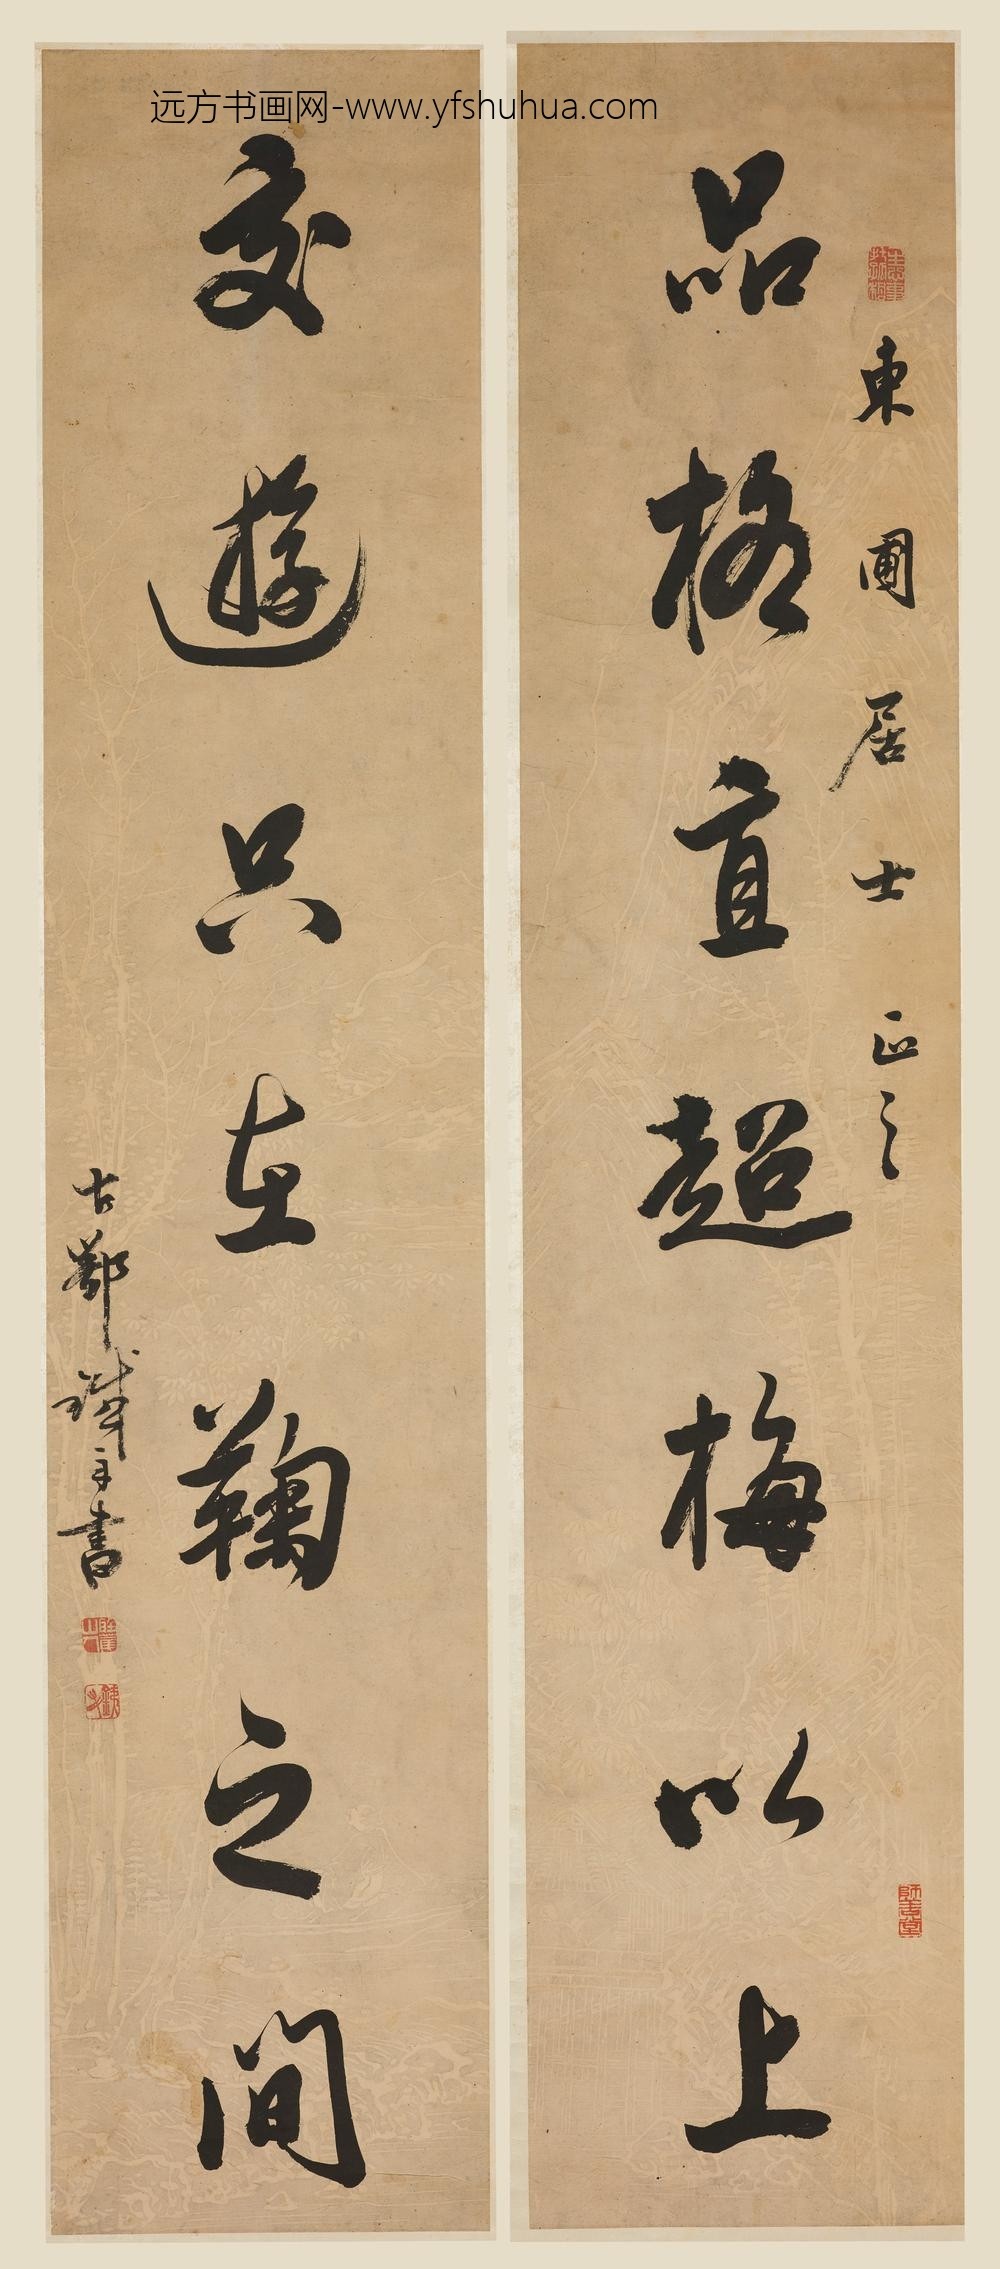 远方书画网-www.yfshuhua.com
東圃居士正之
品格直超梅以上
交遊只在鞠之間
古鄞
書
師善堂